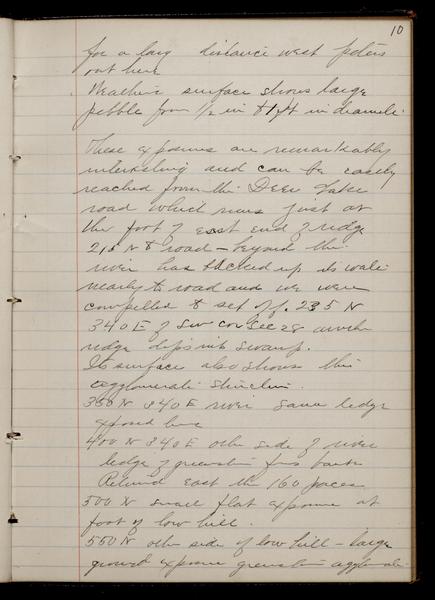 10
for a long distance west peters
out here
Weathered surface shows large
pebble from 1/2 in to 1 ft in diamete.

These exposures are remarkably
interesting and can be easily
reached from the Deer Lake
road which runs just at
the foot of east end of ridge
215 N to road – beyond the
river has backed up its water
nearly to road and we were
compelled to set off. 235 N
340 E of SW cor Sec 28 another
ridge dips into swamp.
Its surface also shows this
agglomerate structure.
350 N 340 E river same ledge
exposed here
400 N 340 E other side of river
ledge of greenstone forms bank
Returned east the 160 paces
500 N small flat exposure at
foot of low hill.
550 N other side of low hill – large
exposure greenstone agglomerate